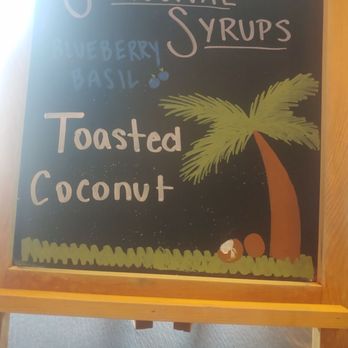 SYRUPS
BLUEBERRY
BASIL
Toasted
Coconut